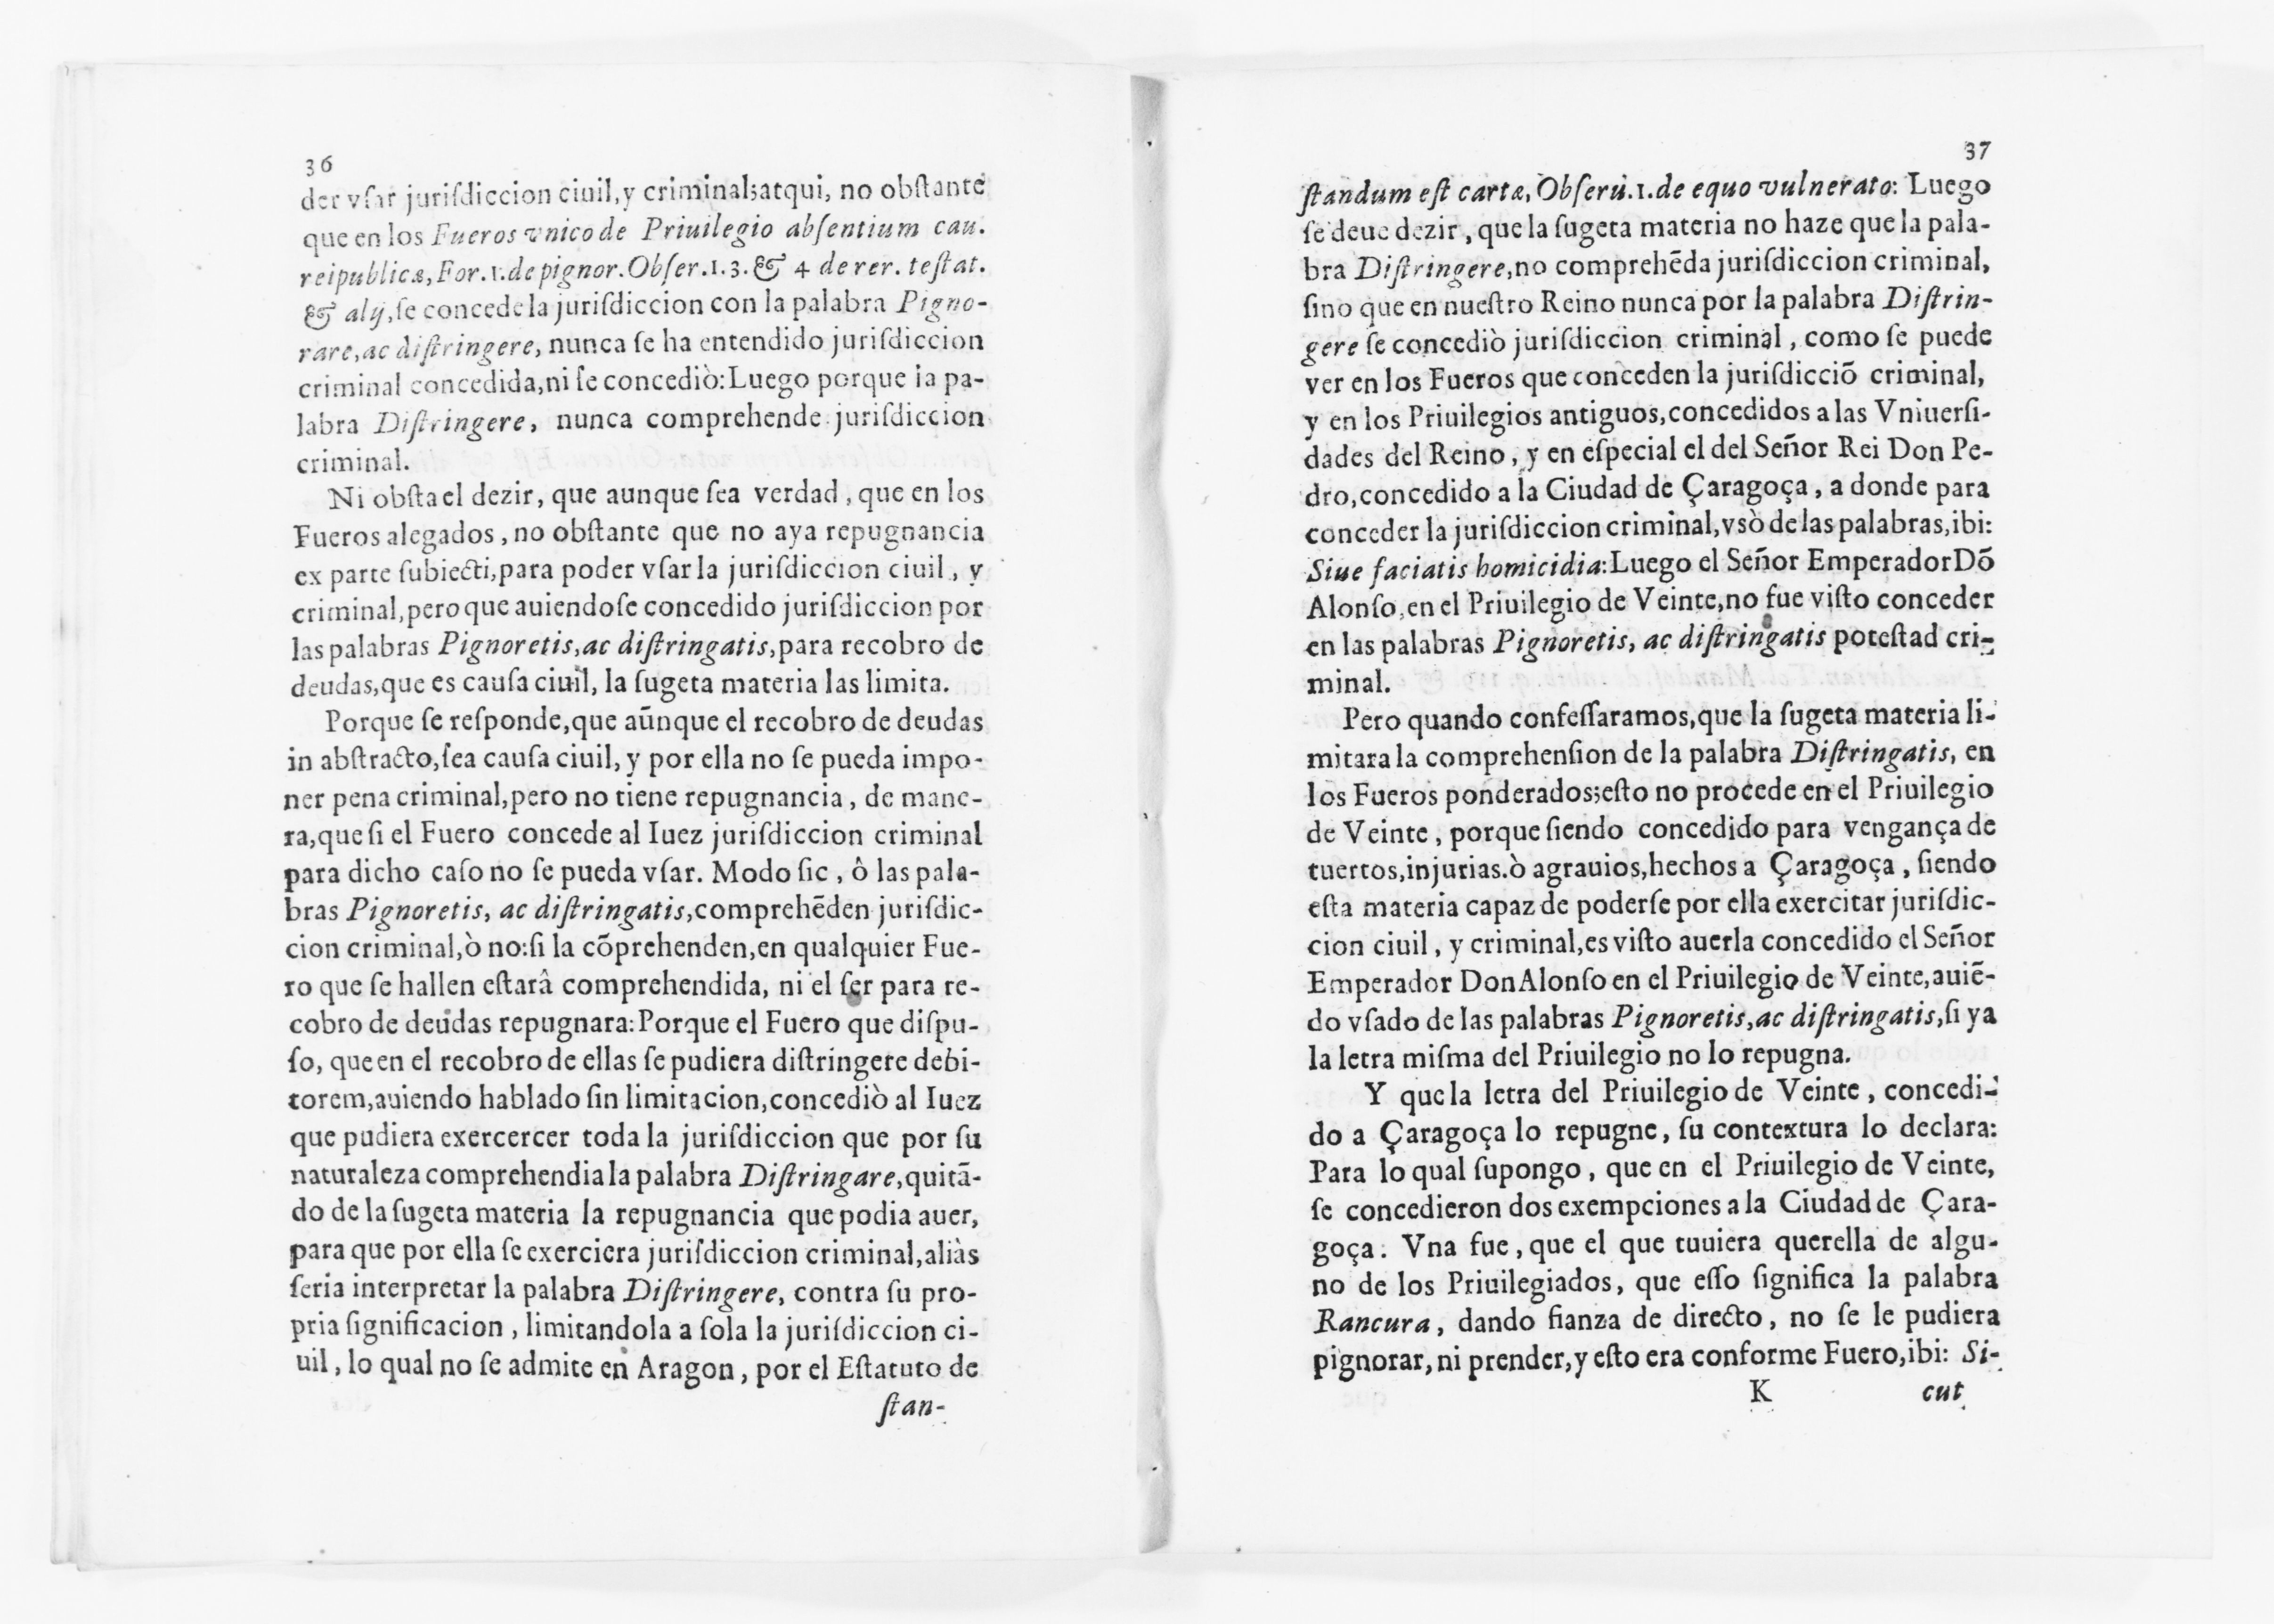 36
der vſar juriſdiccion ciuil,y criminal;atqui, no obſtante
que en los Fueros vnico de Priuilegio abſentium cau.
reipublicæ,For.1.de pignor.Obſer.1.3.& 4 de rer. teſtat.
& alij,ſe concede la juriſdiccion con la palabra Pigno-
rare,ac diſtringere, nunca ſe ha entendido juriſdiccion
criminal concedida,ni ſe concediò:Luego porque la pa-
labra Diſtringere, nunca comprehende juriſdiccion
criminal.
Ni obſta el dezir, que aunque ſea verdad, que en los
Fueros alegados, no obſtante que no aya repugnancia
ex parte ſubiecti,para poder vſar la juriſdiccion ciuil, y
criminal,pero que auiendoſe concedido juriſdiccion por
las palabras Pignoretis,ac diſtringatis,para recobro de
deudas,que es cauſa ciuil, la ſugeta materia las limita.
Porque ſe reſponde,que aũnque el recobro de deudas
in abſtracto,ſea cauſa ciuil, y por ella no ſe pueda impo-
ner pena criminal,pero no tiene repugnancia, de mane-
ra,que ſi el Fuero concede al Iuez juriſdiccion criminal
para dicho caſo no ſe pueda vſar. Modo ſic, ô las pala-
bras Pignoretis, ac diſtringatis,comprehẽden juriſdic-
cion criminal,ò no:ſi la cõprehenden,en qualquier Fue-
ro que ſe hallen eſtarâ comprehendida, ni el ſer para re-
cobro de deudas repugnara:Porque el Fuero que diſpu-
ſo, que en el recobro de ellas ſe pudiera diſtringere debi-
torem,auiendo hablado ſin limitacion,concediò al Iuez
que pudiera exercercer toda la juriſdiccion que por ſu
naturaleza comprehendia la palabra Diſtringare,quitã-
do de la ſugeta materia la repugnancia que podia auer,
para que por ella ſe exerciera juriſdiccion criminal,aliàs
ſeria interpretar la palabra Diſtringere, contra ſu pro-
pria ſignificacion, limitandola a ſola la juriſdiccion ci-
uil, lo qual no ſe admite en Aragon, por el Eſtatuto de
ſtan-
37
ſtandum eſt cartæ, Obſeru.1.de equo vulnerato: Luego
ſe deue dezir, que la ſugeta materia no haze que la pala-
bra Diſtringere,no comprehẽda juriſdiccion criminal,
ſino que en nueſtro Reino nunca por la palabra Diſtrin-
gere ſe concediò juriſdiccion criminal, como ſe puede
ver en los Fueros que conceden la juriſdicciõ criminal,
y en los Priuilegios antiguos,concedidos a las Vniuerſi-
dades del Reino, y en eſpecial el del Señor Rei Don Pe-
dro,concedido a la Ciudad de Çaragoça, a donde para
conceder la juriſdiccion criminal,vsò de las palabras,ibi:
Siue faciatis homicidia:Luego el Señor Emperador Dõ
Alonſo,en el Priuilegio de Veinte,no fue viſto conceder
en las palabras Pignoretis, ac diſtringatis poteſtad cri-
minal.
Pero quando confeſſaramos,que la ſugeta materia li-
mitara la comprehenſion de la palabra Diſtringatis, en
los Fueros ponderados;eſto no procede en el Priuilegio
de Veinte, porque ſiendo concedido para vengança de
tuertos,injurias.ò agrauios,hechos a Çaragoça, ſiendo
eſta materia capaz de poderſe por ella exercitar juriſdic-
cion ciuil, y criminal,es viſto auerla concedido el Señor
Emperador Don Alonſo en el Priuilegio de Veinte,auiẽ-
do vſado de las palabras Pignoretis,ac diſtringatis,ſi ya
la letra miſma del Priuilegio no lo repugna.
Y que la letra del Priuilegio de Veinte, concedi-
do a Çaragoça lo repugne, ſu contextura lo declara:
Para lo qual ſupongo, que en el Priuilegio de Veinte,
ſe concedieron dos exempciones a la Ciudad de Çara-
goça. Vna fue, que el que tuuiera querella de algu-
no de los Priuilegiados, que eſſo ſignifica la palabra
Rancura, dando fianza de directo, no ſe le pudiera
pignorar, ni prender,y eſto era conforme Fuero,ibi: Si-
K cut